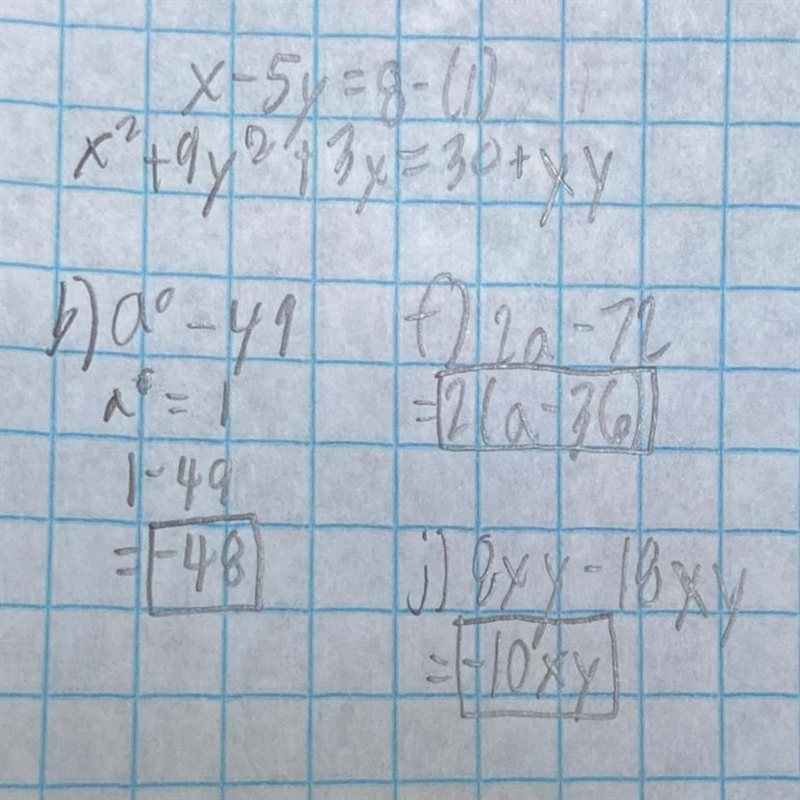 x - 5y = 8 - (1)
x² + 9y² + 3x = 30 + xy
b) a⁰ - 49
a⁰ = 1
1 - 49
= -48
f) 2a - 72
= 2(a - 36)
j) 8xy - 18xy
= -10xy